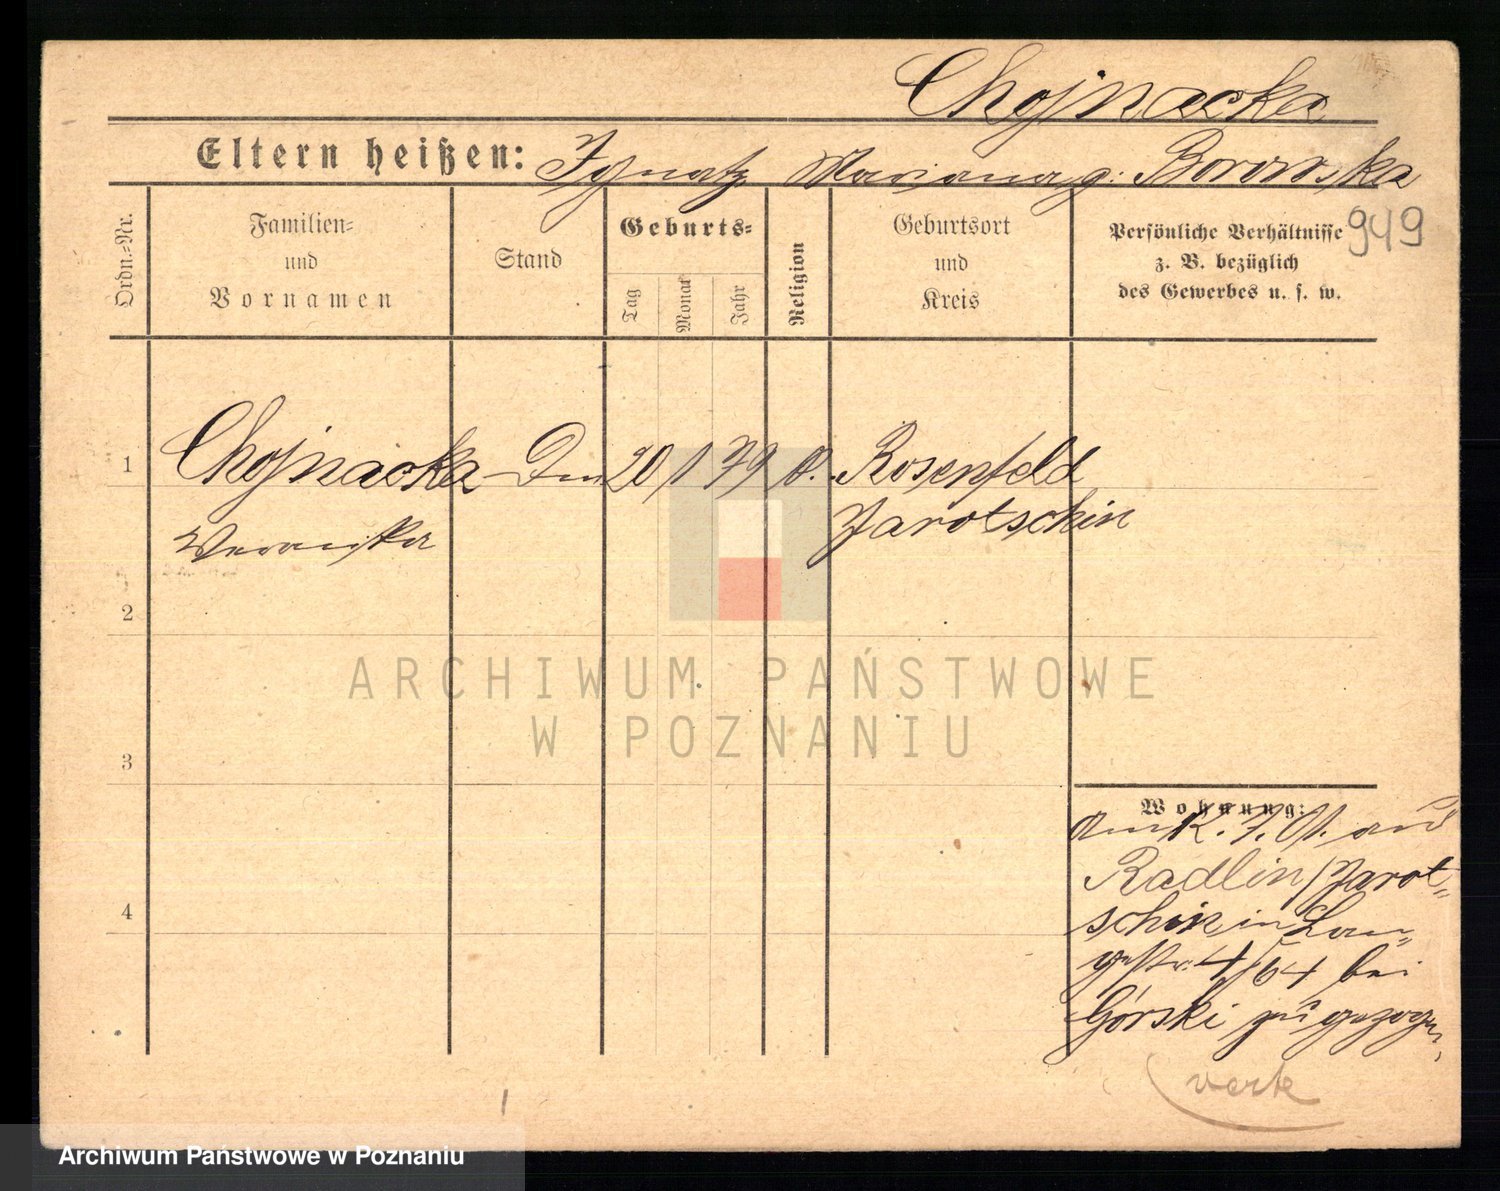 Chojnacka
Eltern heißen: Ignatz Mariana g. Borowska
949
Ordn.=Nr.
Familien=
und
Vornamen
Stand
Geburts=
Tag
Monat
Jahr
Religion
Geburtsort
und
Kreis
Persönliche Verhältnisse
z. B. bezüglich
des Gewerbes u. s. w.
1 Chojnacka 20/1 79 Rosenfeld
Veronika Jarotschin
2
ARCHIWUM PAŃSTWOWE
W POZNANIU
3
Wohnung:
aus
Radlin/Jarot=
schin in Lan=
gestr. 4/64 bei
Górski zugezogen
4
Archiwum Państwowe w Poznaniu